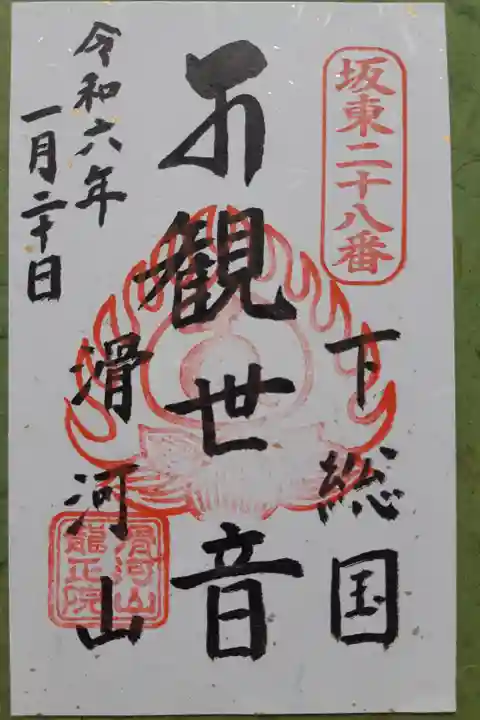 坂東二十八番
下総国
観世音
滑河山
滑河山
龍正院
令和六年
一月二十日